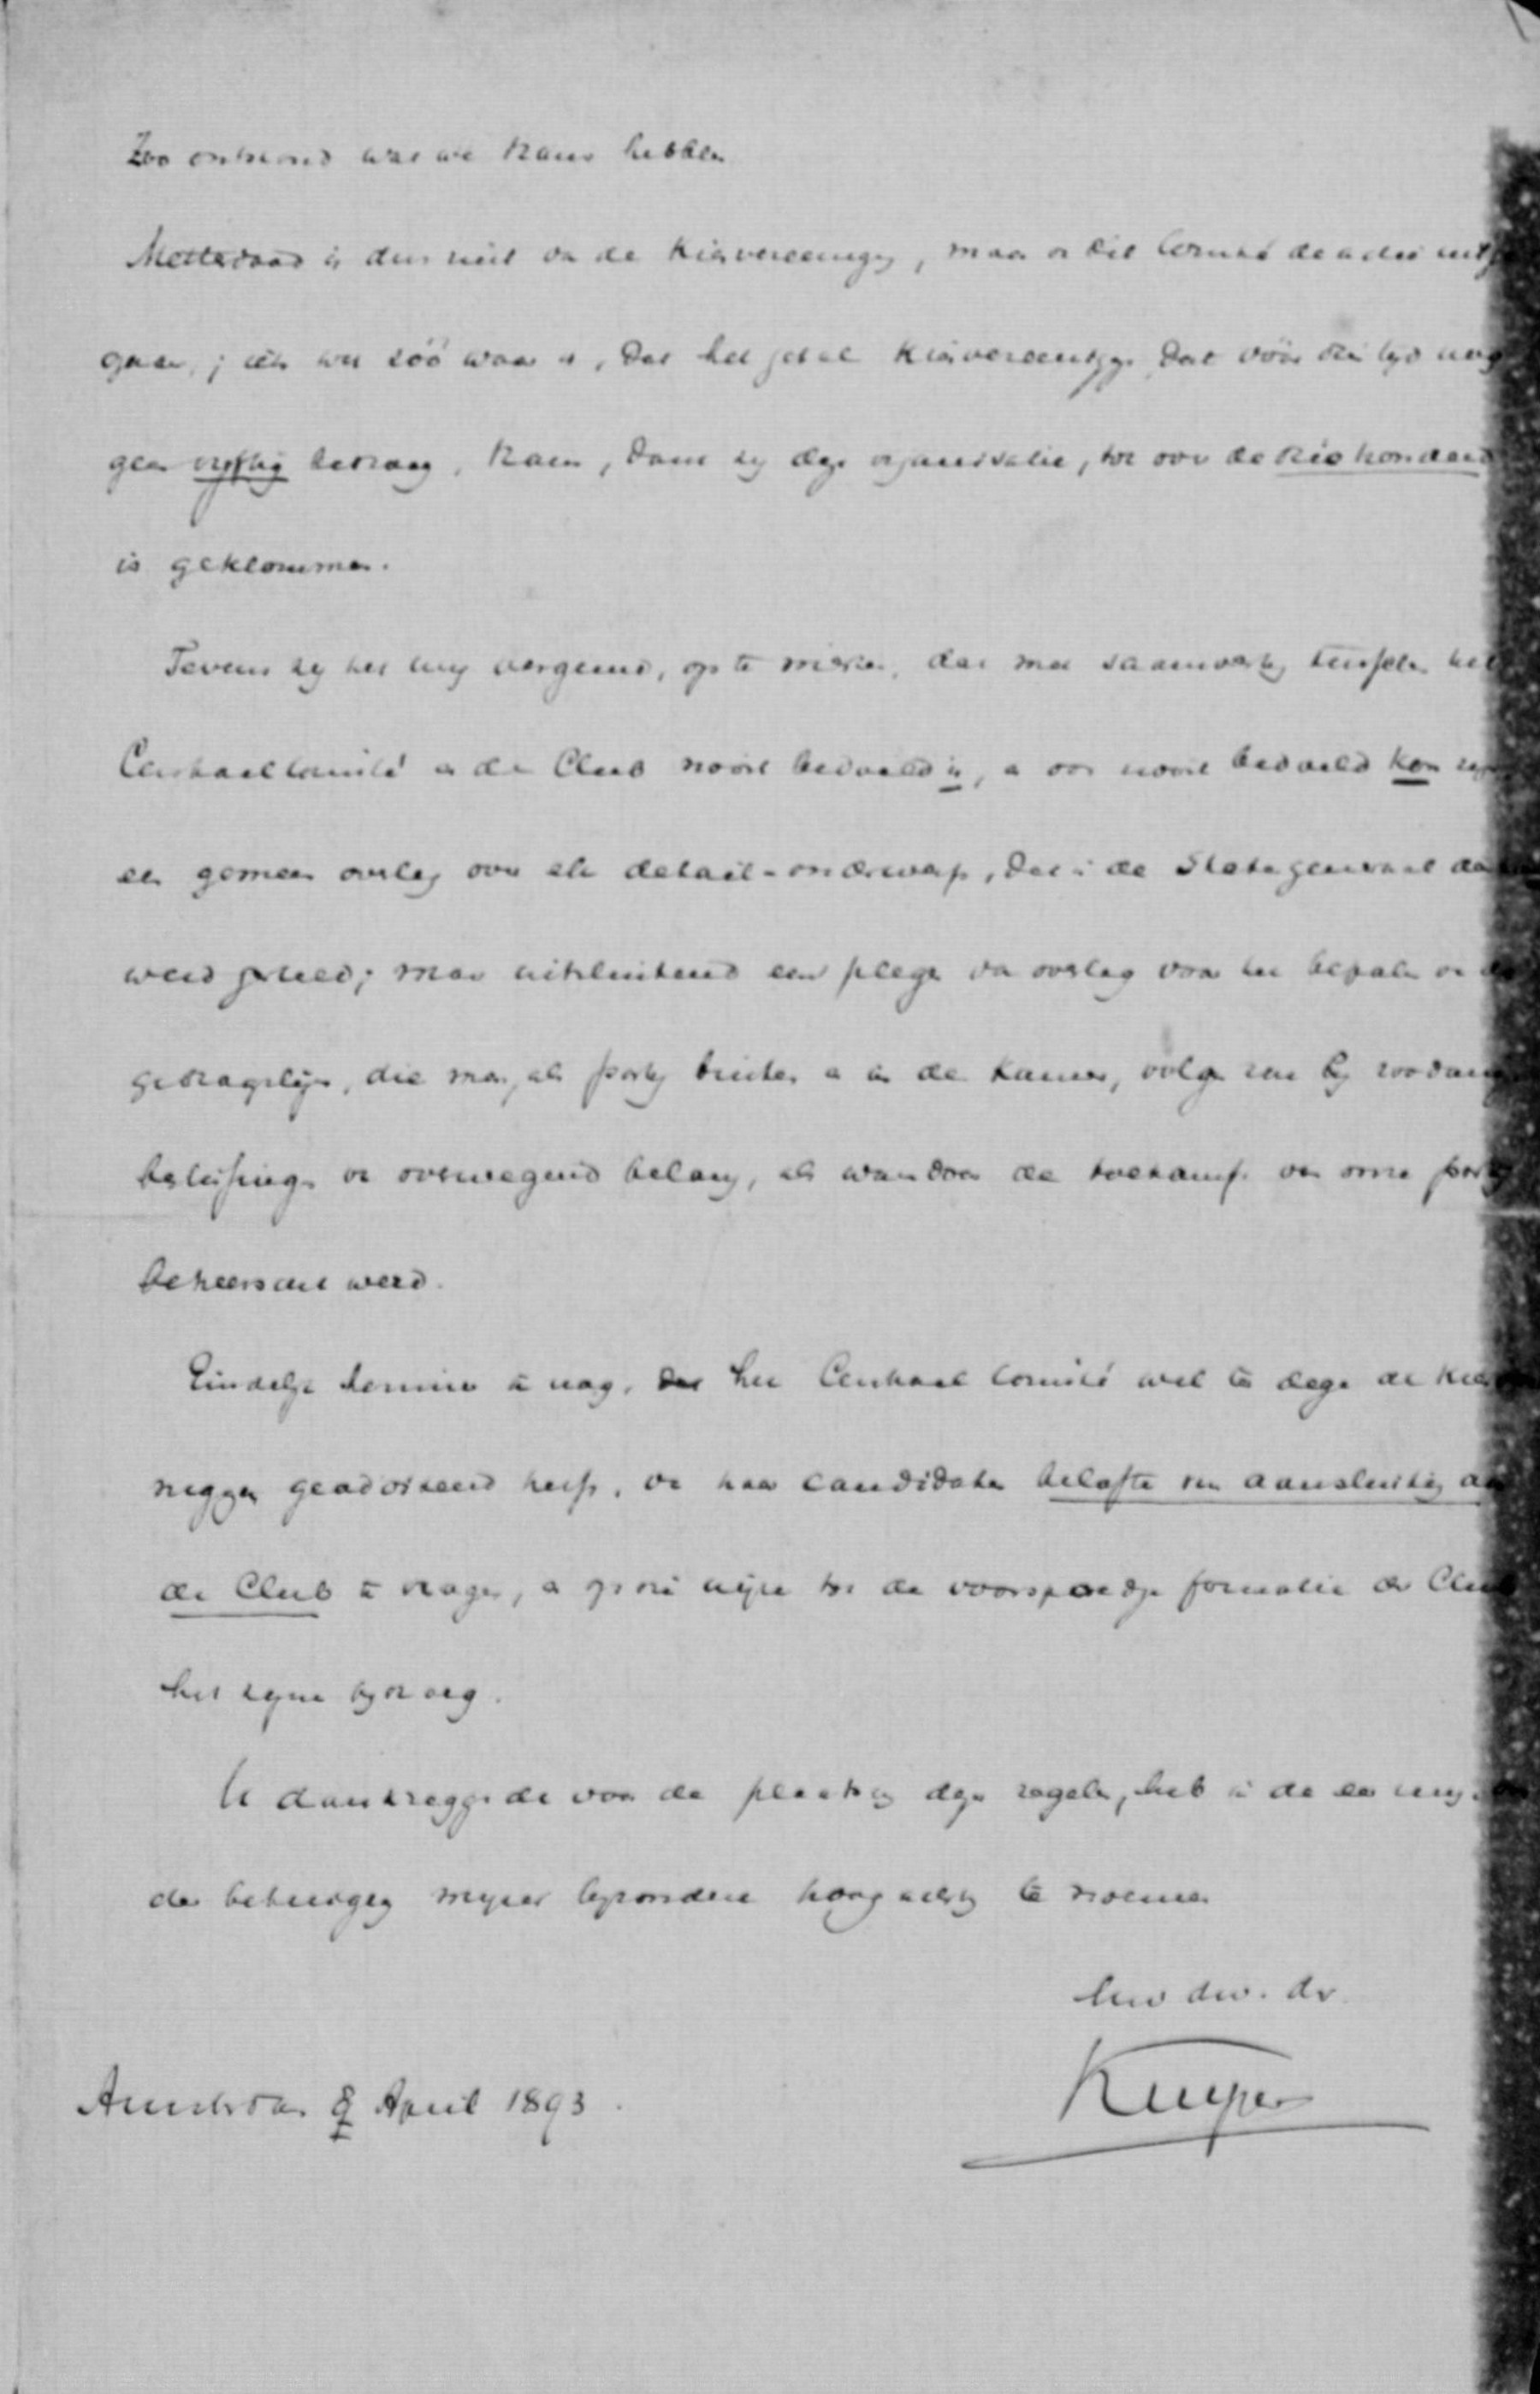 Zoo ontstond wat we thans hebben
Mettedaad is dus niet van de Kiesvereenigingen, maar van dit Comité de actie uitge
gaan; iets wat zóó waar is, dat het getal Kiesvereenigingen, dat vóór dien tijd nog
geen vijftig bedroeg, thans, dank zij deze organisatie, tot over de driehonderd
is geklommen.
Tevens zij het mij vergund, op te merken, dat met saamwerking tusschen het
Centraal Comité en de Club nooit bedoeld is, en ook nooit bedoeld kon zijn
een gemeen overleg over elk detail-onderwerp, dat in de Staten generaal
werd; maar uitsluitend een plegen van overleg voor het bepalen van de
gedragslijn, die men, als partij buiten en in de Kamer, volgen zou bij zoodanige
beslissingen van overwegend belang, als waardoor de toekomst van onze partij
beheerscht werd.
Eindelijk herinner ik nog, dat het Centraal Comité wel ter dege de Kies
nigingen geadviseerd heeft, van haar candidaten belofte van aansluiting aan
de Club te vragen, en op die wijze tot de voorspoedige formatie der Club
het zijne bijdroeg.
U dankzeggende voor de plaatsing dezer regelen, heb ik de eer mij, 
de betuiging mijner bijzondere hoogachting te noemen
Uw dw. dr.
Kuyper
Amsterdam 8 April 1893.